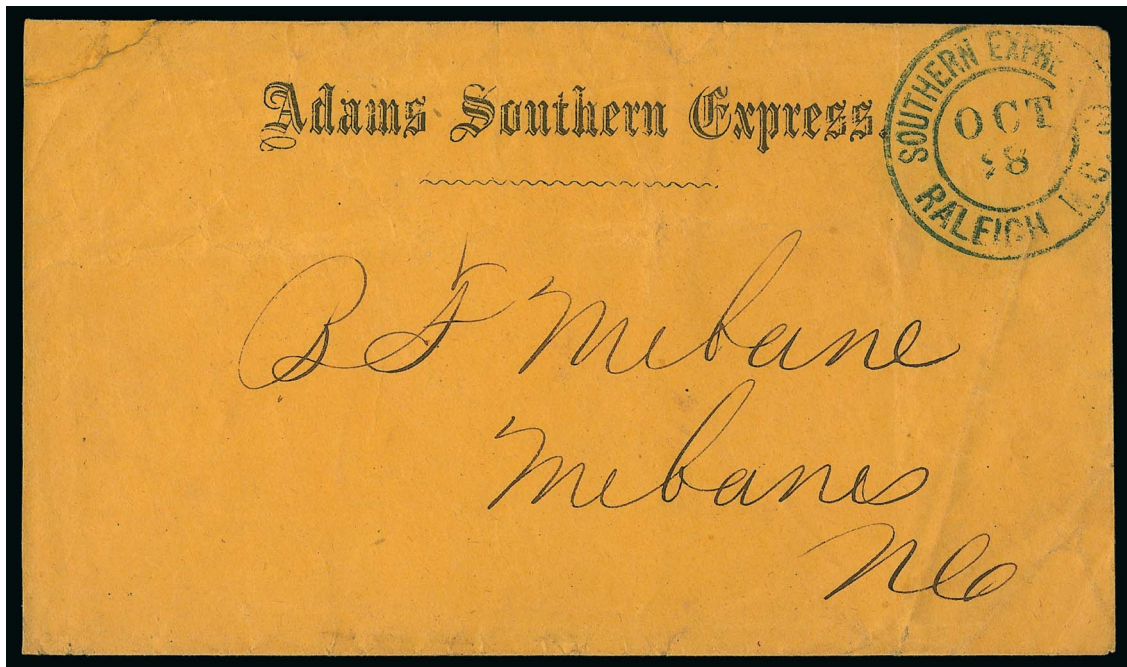 Adams Southern Express.
SOUTHERN EXPRESS
OCT
RALEIGH N.C.
B F Mebane
Mebanes
NC